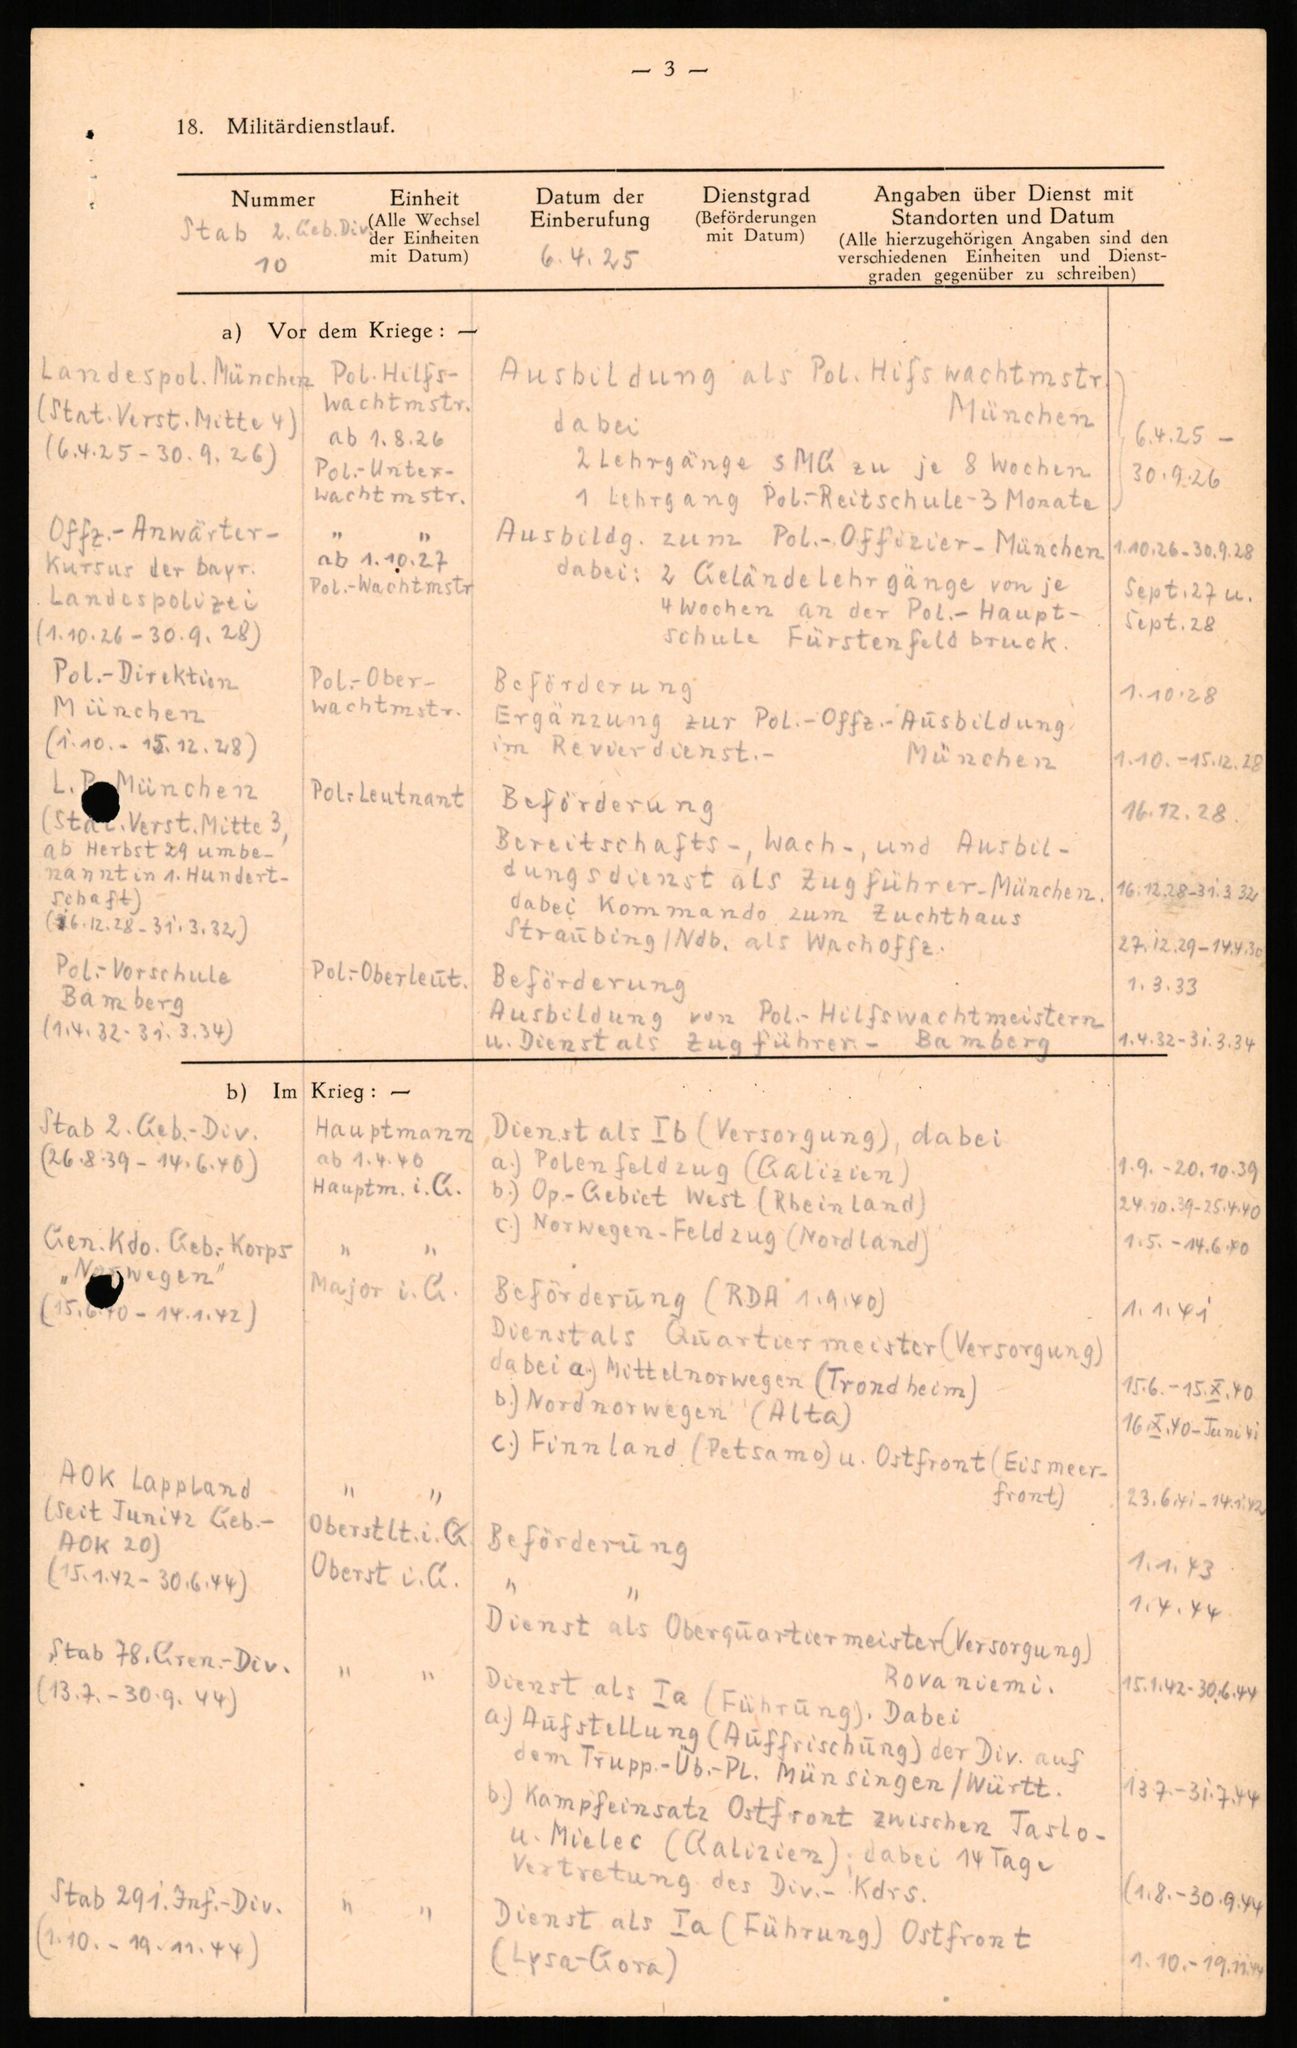 — 3 —
18. Militärdienstlauf.
Nummer
Stab 2. Geb. Div.
10
Einheit
(Alle Wechsel
der Einheiten
mit Datum)
Datum der
Einberufung
6.4.25
Dienstgrad
(Beförderungen
mit Datum)
Angaben über Dienst mit
Standorten und Datum
(Alle hierzugehörigen Angaben sind den
verschiedenen Einheiten und Dienst-
graden gegenüber zu schreiben)
a) Vor dem Kriege: —
Landespol. München
(Stat. Verst. Mitte 4)
(6.4.25 - 30.9.26)
Pol. Hilfs-
wachtmstr.
ab 1.8.26
Pol.-Unter-
wachtmstr.
Ausbildung als Pol. Hifswachtmstr.
München
dabei
2 Lehrgänge sMG zu je 8 Wochen
1 Lehrgang Pol.-Reitschule - 3 Monate
6.4.25 -
30.9.26
Offz.-Anwärter-
Kursus der bayr.
Landespolizei
(1.10.26 - 30.9.28)
" "
ab 1.10.27
Pol.-Wachtmstr
Ausbildg. zum Pol.-Offizier - München
dabei: 2 Geländelehrgänge von je
4 Wochen an der Pol.-Haupt-
schule Fürstenfeldbruck.
1.10.26 - 30.9.28
Sept. 27 u.
Sept. 28
Pol.-Direktion
München
(1.10. - 15.12.28)
Pol.-Ober-
wachtmstr.
Beförderung
Ergänzung zur Pol.-Offz.-Ausbildung
im Revierdienst.- München
1.10.28
1.10. - 15.12.28
L. P. München
(Stat. Verst. Mitte 3,
ab Herbst 29 umbe-
nannt in 1. Hundert-
schaft)
(16.12.28 - 31.3.32)
Pol.-Leutnant
Beförderung
Bereitschafts-, Wach-, und Ausbil-
dungsdienst als Zugführer - München.
dabei Kommando zum Zuchthaus
Straubing/Ndb. als Wachoffz.
16.12.28.
16.12.28 - 31.3.32
27.12.29 - 14.4.30
Pol.-Vorschule
Bamberg
(1.4.32 - 31.3.34)
Pol.-Oberleut.
Beförderung
Ausbildung von Pol.-Hilfswachtmeistern
u. Dienst als Zugführer - Bamberg
1.3.33
1.4.32 - 31.3.34
b) Im Krieg: —
Stab 2. Geb.-Div.
(26.8.39 - 14.6.40)
Hauptmann
ab 1.4.40
Hauptm. i. G.
Dienst als Ib (Versorgung), dabei
a.) Polenfeldzug (Galizien)
b.) Op.-Gebiet West (Rheinland)
c.) Norwegen-Feldzug (Nordland)
1.9. - 20.10.39
24.10.39 - 25.4.40
1.5. - 14.6.40
Gen. Kdo. Geb.-Korps
„Norwegen"
(15.6.40 - 14.1.42)
" "
Major i. G.
Beförderung (RDA 1.9.40)
Dienst als Quartiermeister (Versorgung)
dabei a.) Mittelnorwegen (Trondheim)
b.) Nordnorwegen (Alta)
c.) Finnland (Petsamo) u. Ostfront (Eismeer-
front)
1.1.41
15.6. - 15.X.40
16.X.40 - Juni 41
23.6.41 - 14.1.42
AOK Lappland
(seit Juni 42 Geb.-
AOK 20)
(15.1.42 - 30.6.44)
" "
Oberstlt. i. G.
Oberst i. G.
Beförderung
" "
Dienst als Oberquartiermeister (Versorgung)
Rovaniemi.
1.1.43
1.4.44
15.1.42 - 30.6.44
Stab 78. Gren.-Div.
(13.7. - 30.9.44)
" "
Dienst als Ia (Führung). Dabei
a.) Aufstellung (Auffrischung) der Div. auf
dem Trupp.-Üb.-Pl. Münsingen/Württ.
b.) Kampfeinsatz Ostfront zwischen Jaslo-
u. Mielec (Galizien); dabei 14 Tage
Vertretung des Div.-Kdrs.
13.7. - 31.7.44
(1.8. - 30.9.44
Stab 291. Inf.-Div.
(1.10. - 19.11.44)
" "
Dienst als Ia (Führung) Ostfront
(Lysa-Gora)
1.10. - 19.11.44